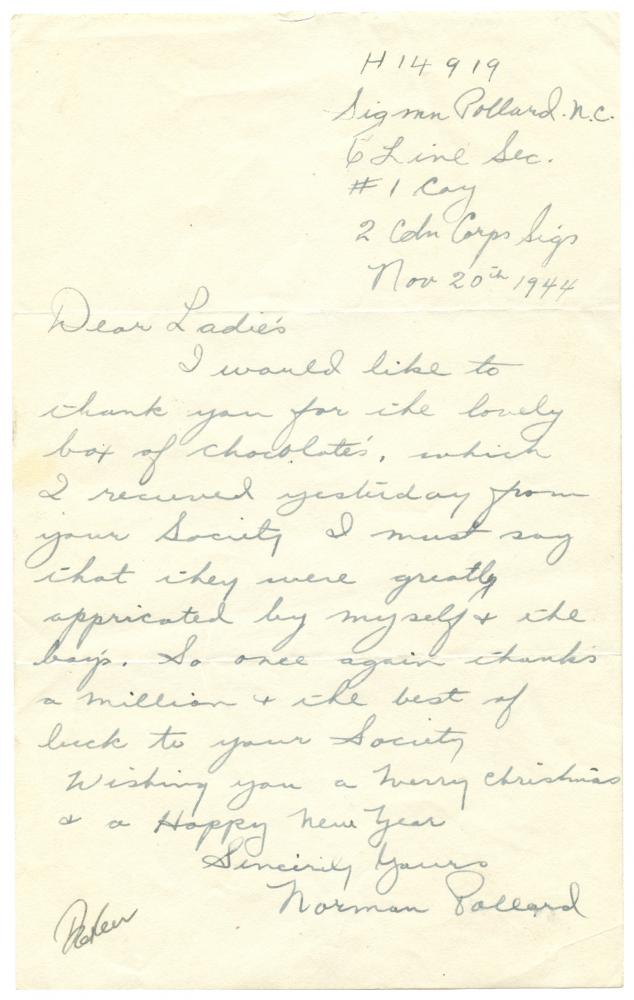 H 14919
Sigmn Pollard. N.C.
6 Line Sec.
# 1 Coy
2 Cdn Corps Sigs
Nov 20th 1944
Dear Ladie's
I would like to
thank you for the lovely
box of chocolate's, which
I recieved yesterday from
your Society I must say
that they were greatly
appricated by myself & the
boy's. So once again thanks
a million & the best of
luck to your Society
Wishing you a Merry Christmas
& a Happy New Year
Sincirly Yours
Norman Pollard